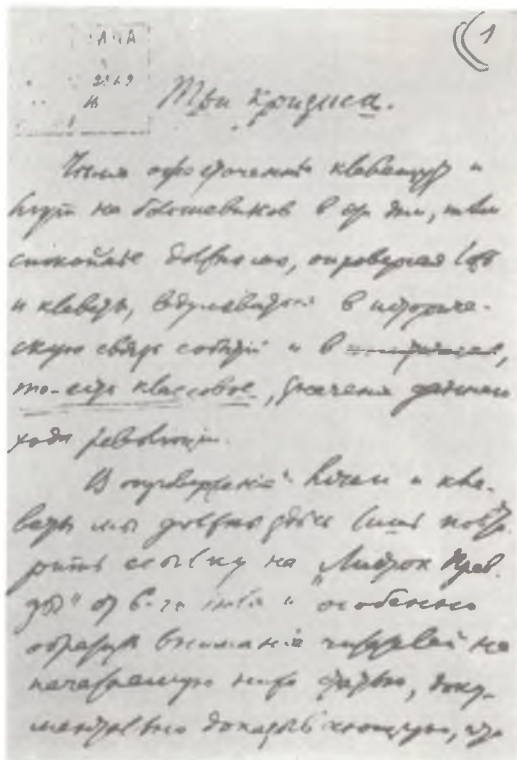 1
Три кризиса.
Чем ожесточеннее клевещут и
лгут на большевиков в эти дни, тем
спокойнее должны мы, опровергая ложь
и клевету, вдумываться в историче-
скую связь событий и в
то-есть классовое, значение данного
хода революции.
В опровержение лжи и кле-
веты мы должны здесь лишь повто-
рить ссылку на „Листок Прав-
ды" от 6-го июля и особенно
обратить внимание читателей на
печатаемую ниже статью, доку-
ментально доказывающую, что